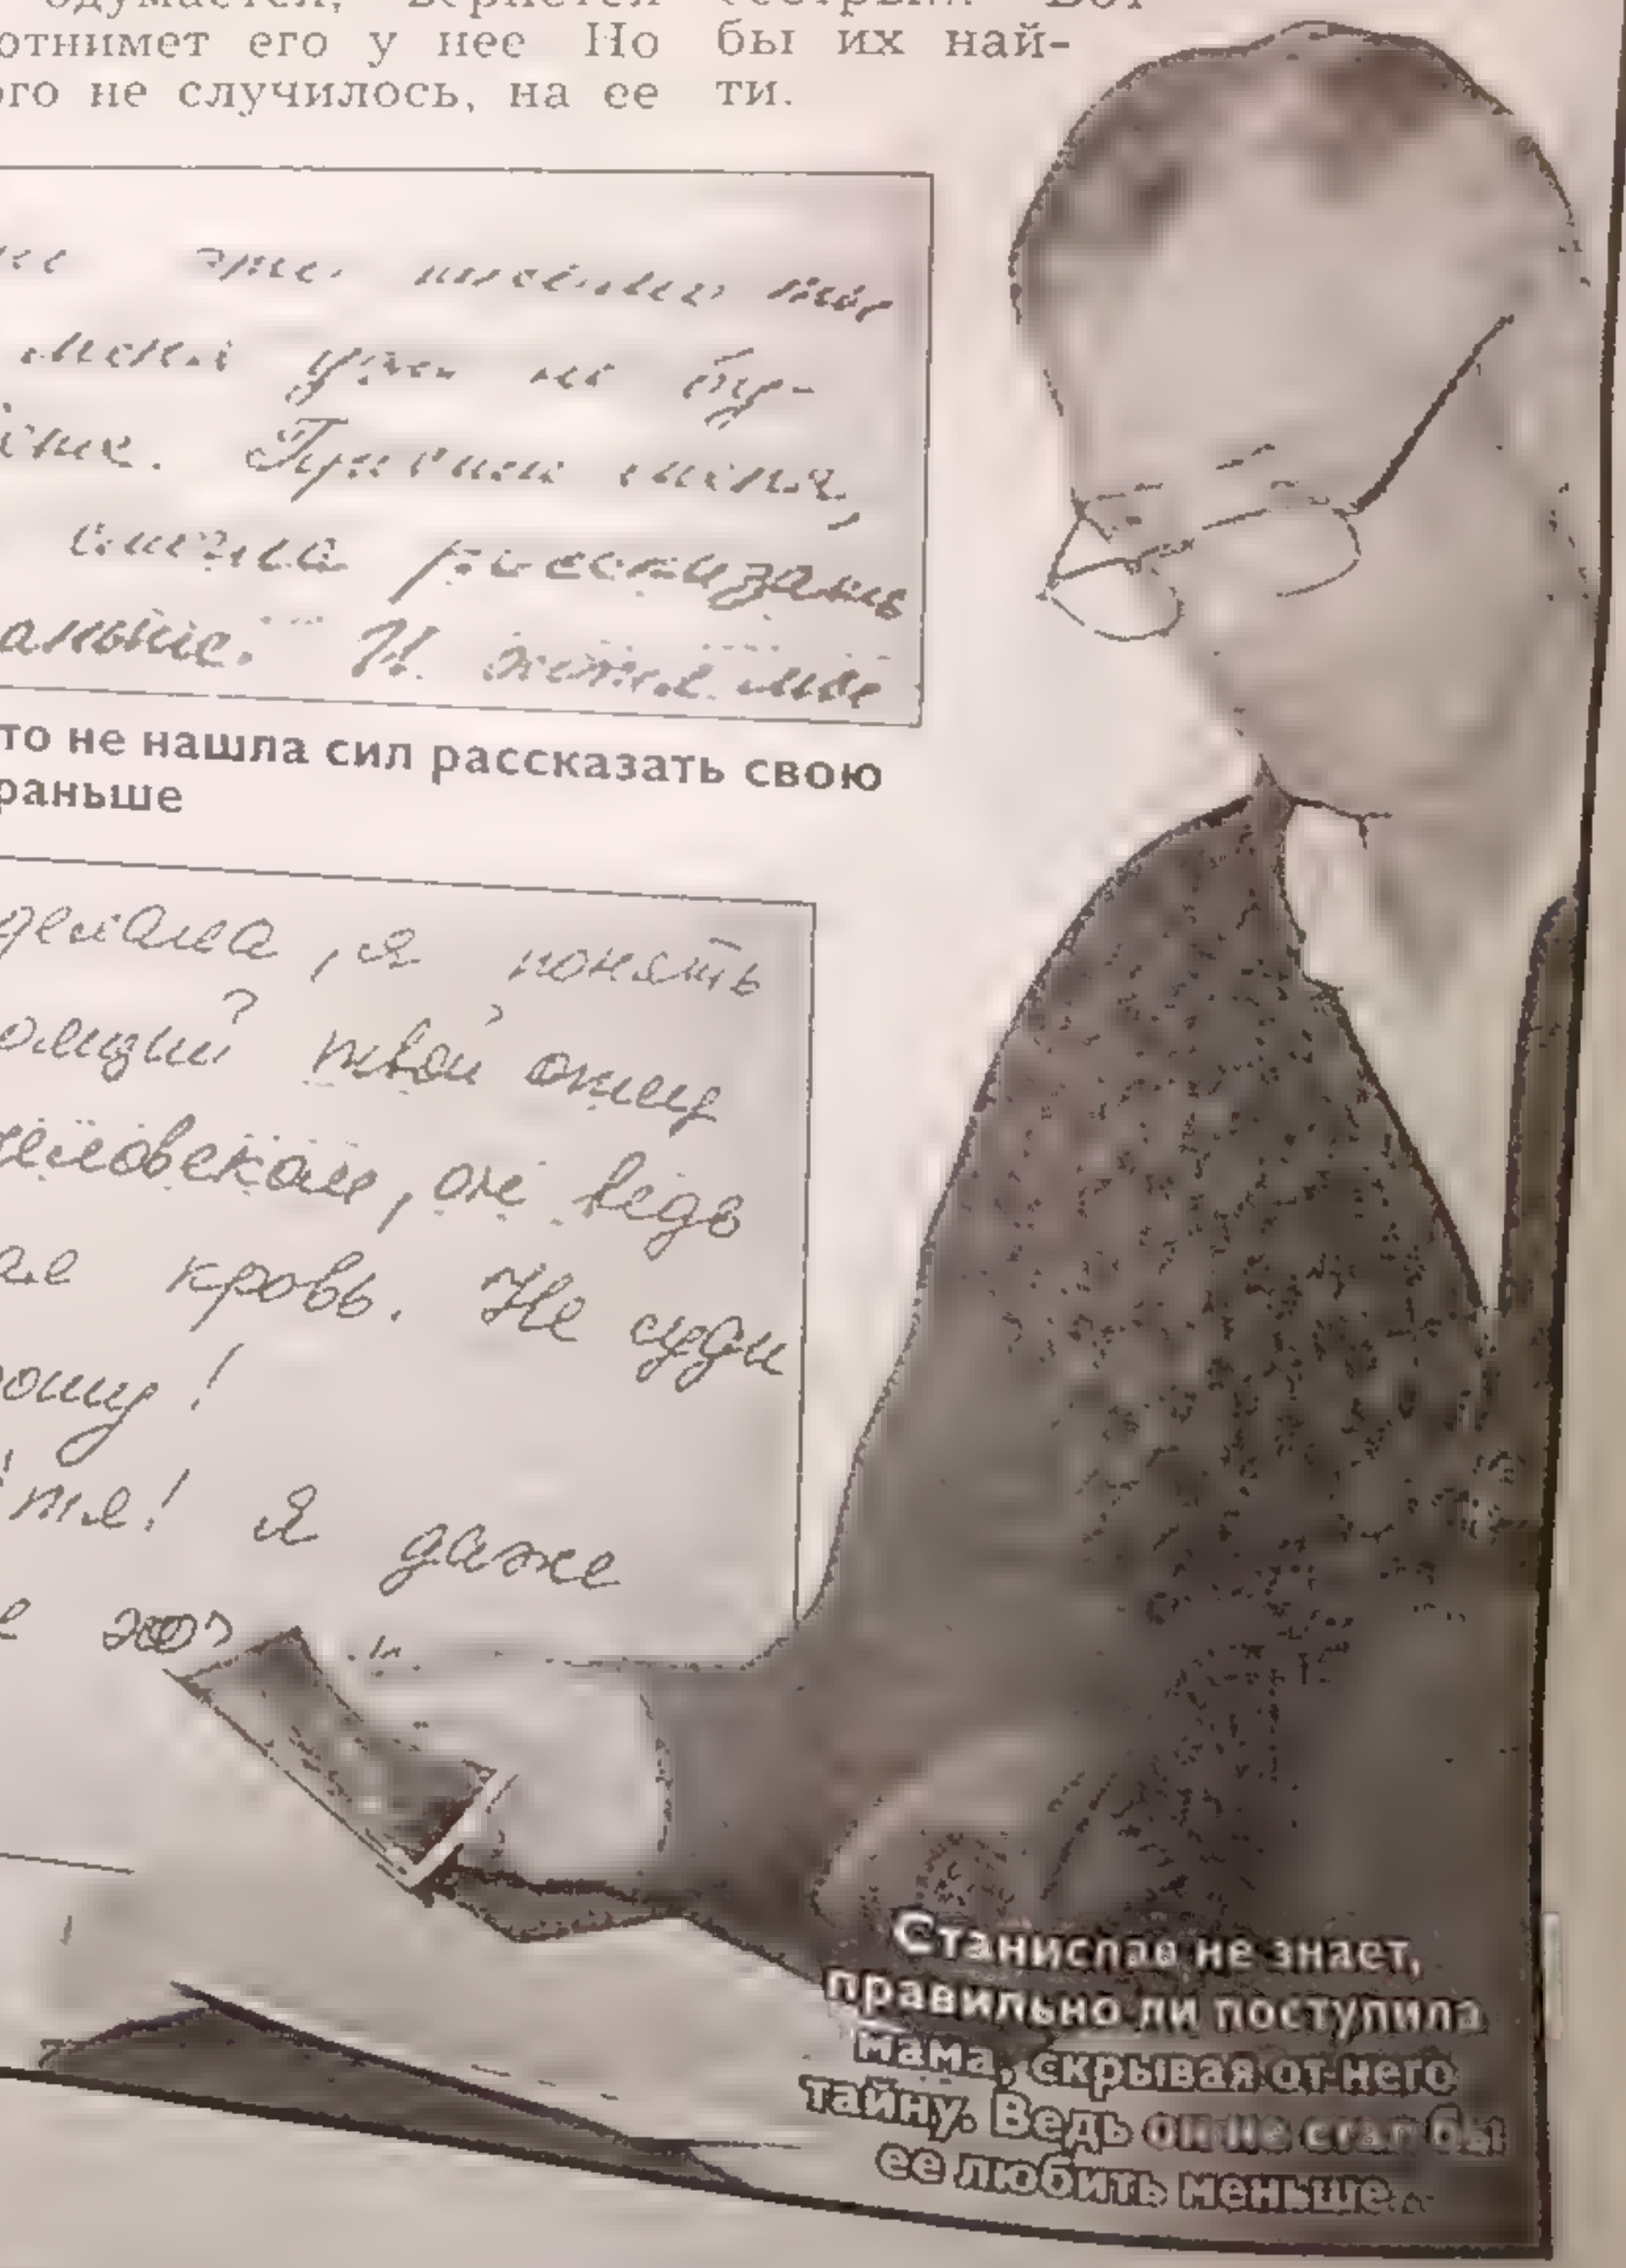 отнимет его у нее Но
не случилось, на ее
бы их най-
ти.
меня уж не бу-
Прости меня,
смогла рассказать
И хотя мне
то не нашла сил рассказать свою
раньше
, я понять
твой отец
человеком, он ведь
кровь. Не суди
!
! Я даже
Станислав не знает,
правильно ли поступила
мама, скрывая от него
тайну. Ведь он не стал бы
ее любить меньше...